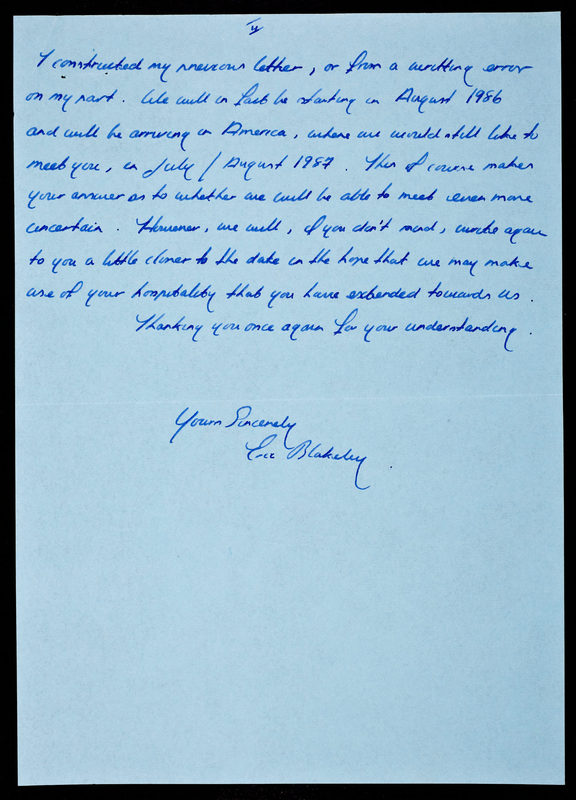 II
I constructed my previous letter, or from a writting error
on my part. We will in fact be starting in August 1986
and will be arriving in America, where we would still like to
meet you, in July / August 1987. This of course makes
your answer as to whether we will be able to meet even more
uncertain. However, we will, if you don't mind, write again
to you a little closer to the date in the hope that we may make
use of your hospitality that you have extended towards us.
Thanking you once again for your understanding.
Yours Sincerely
Eric Blakeley